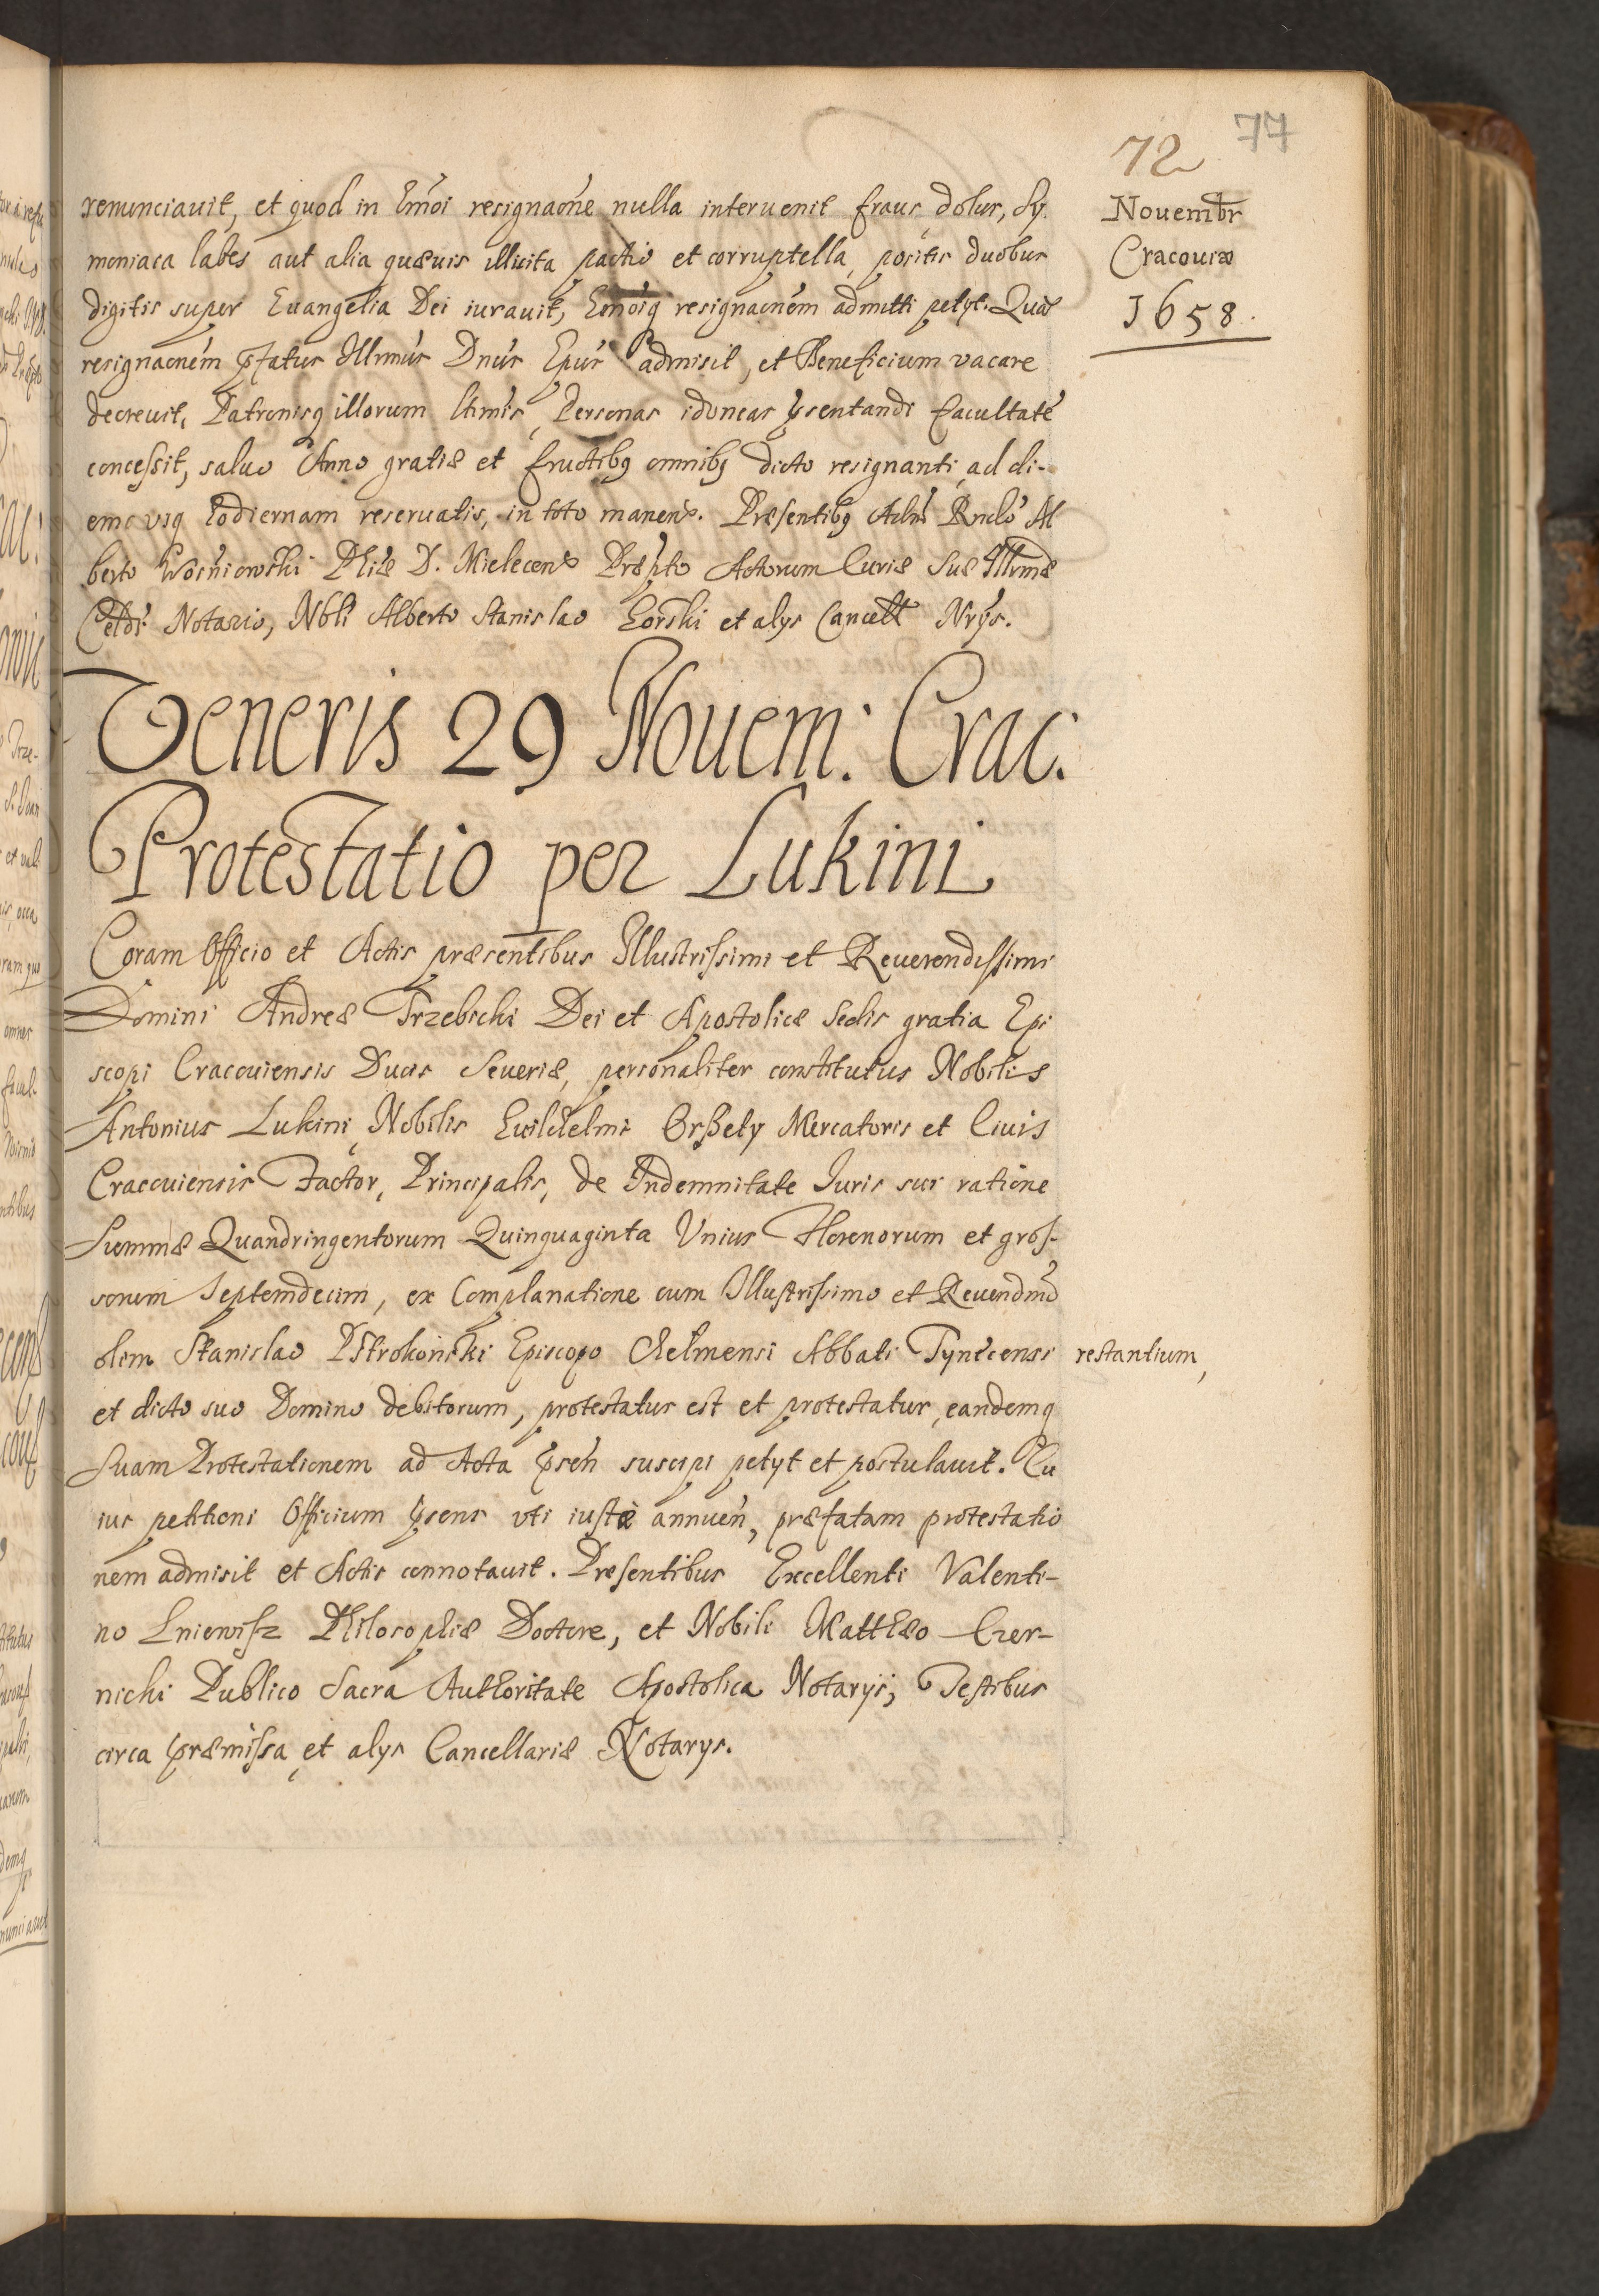 72 77
Nouembr
Cracouiæ
1658.
renunciauit, et quod in hmõi resignaõne nulla interuenit fraus dolus, Sy
moniaca labes aut alia quæuis illicita pactio et corruptella, positis duobus
digitis super Euangelia Dei iurauit, hmõiq resignaõnem admitti petyt. Quã
resignaõnem pfatus Illrmus Dnus Epus admisit, et Beneficium vacare
decreuit, Patronisq illorum ltimis, Personas idoneas psentandi facultatẽ
concessit, saluo Anno gratiæ et fructibq omnibq dicto resignanti ad di-
em vsq hodiernam reseruatis, in toto manen. Præsentibq Adm Rndo Al
berto Wosniowski Phiæ D. Mielecen Præpto Actorum Curiæ Suæ Illrmæ
Celdi Notario, Nbli Alberto Stanislao Gorski et alys Cancell Nrys.
Veneris 29 Nouem: Crac.
Protestatio per Lukini
Coram Officio et Actis præsentibus Illustrissimi et Reuerendissimi
Domini Andreæ Trzebicki Dei et Apostolicæ Sedis gratia Epi
scopi Cracouiensis Ducis Seueriæ, personaliter constitutus Nobilis
Antonius Lukini Nobilis Guilhelmi Orsety Mercatoris et Ciuis
Cracouiensis Factor, Principalis, de Indemnitate Iuris sui ratione
Summæ Quandringentorum Quinquaginta Vnius Florenorum et gros-
sorum Septemdecim, ex Complanatione cum Illustrissimo et Reuendmo
olim Stanislao Pstrokonski Episcopo Chelmensi Abbati Tynecensi restantium,
et dicto suo Domino debitorum, protestatus est et protestatur, eandemq
Suam Protestationem ad Acta psen suscipi petyt et postulauit. Cu
ius petitioni Officium psens vti iustæ annuen, præfatam protestatio
nem admisit et Actis connotauit. Præsentibus Excellenti Valenti-
no Kniewisz Philosophiæ Doctore, et Nobili Matthæo Czer-
nicki Publico Sacra Authoritate Apostolica Notarys, Testibus
circa præmissa et alys Cancellariæ Notarys.